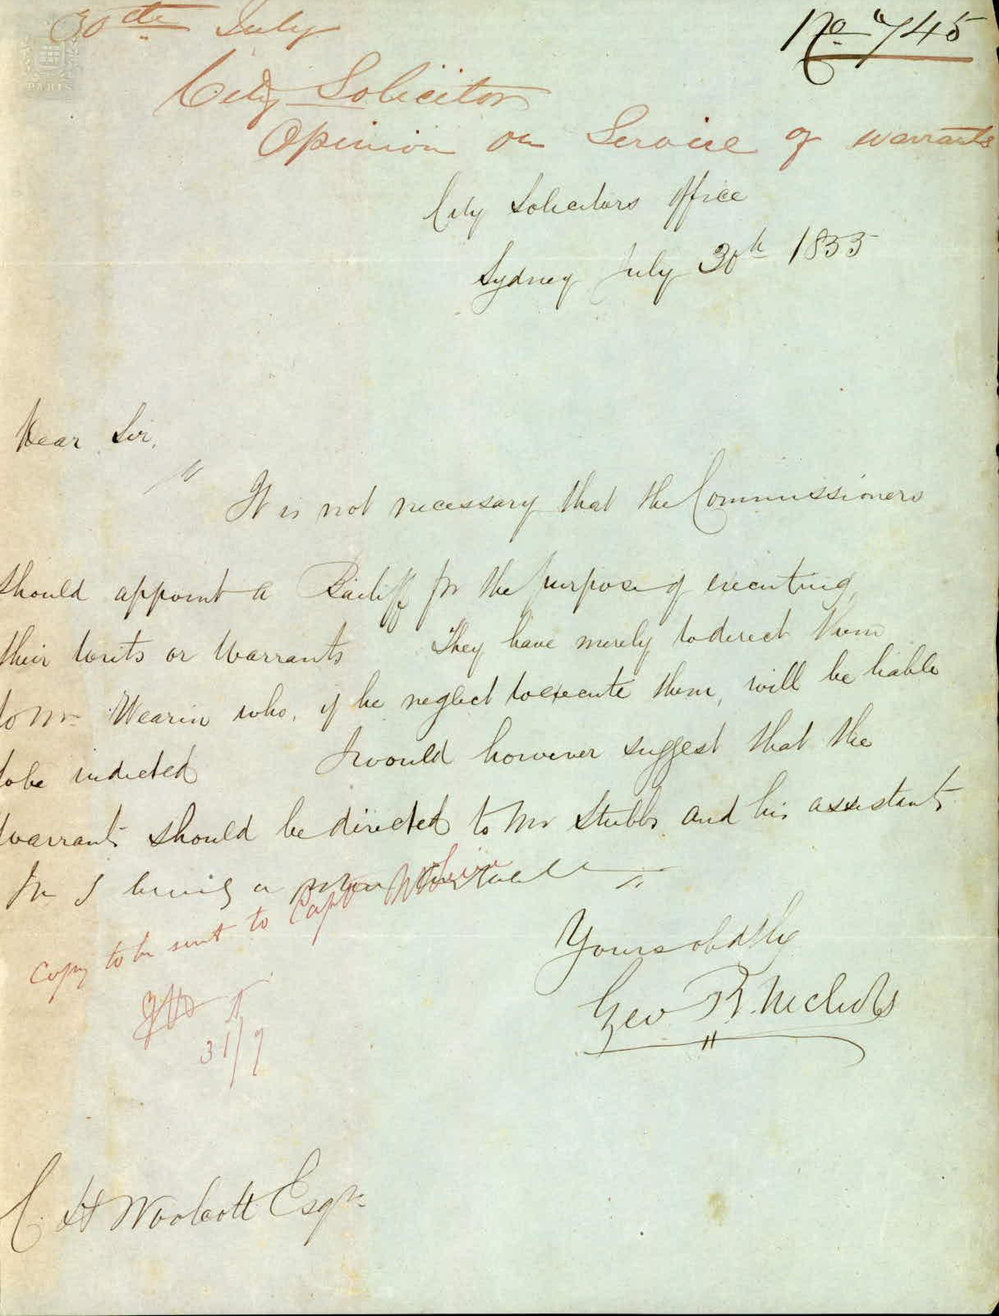 30th July
No 745
City Solicitor
Opinion on Service of warrants
City Solicitors Office
Sydney July 30th 1855
Dear Sir,
It is not necessary that the Commissioners
should appoint a Bailiff for the purpose of executing
their writs or warrants They have merely to direct them
to Mr Wearin who, if he neglect to execute them, will be liable
to be indicted I would however suggest that the
warrants should be directed to Mr Stubbs and his assistants
being a
copy to be sent to Capt
31/7
Yours obdtly
Geo R. Nichols
C H Woolcott Esqre
PARIS